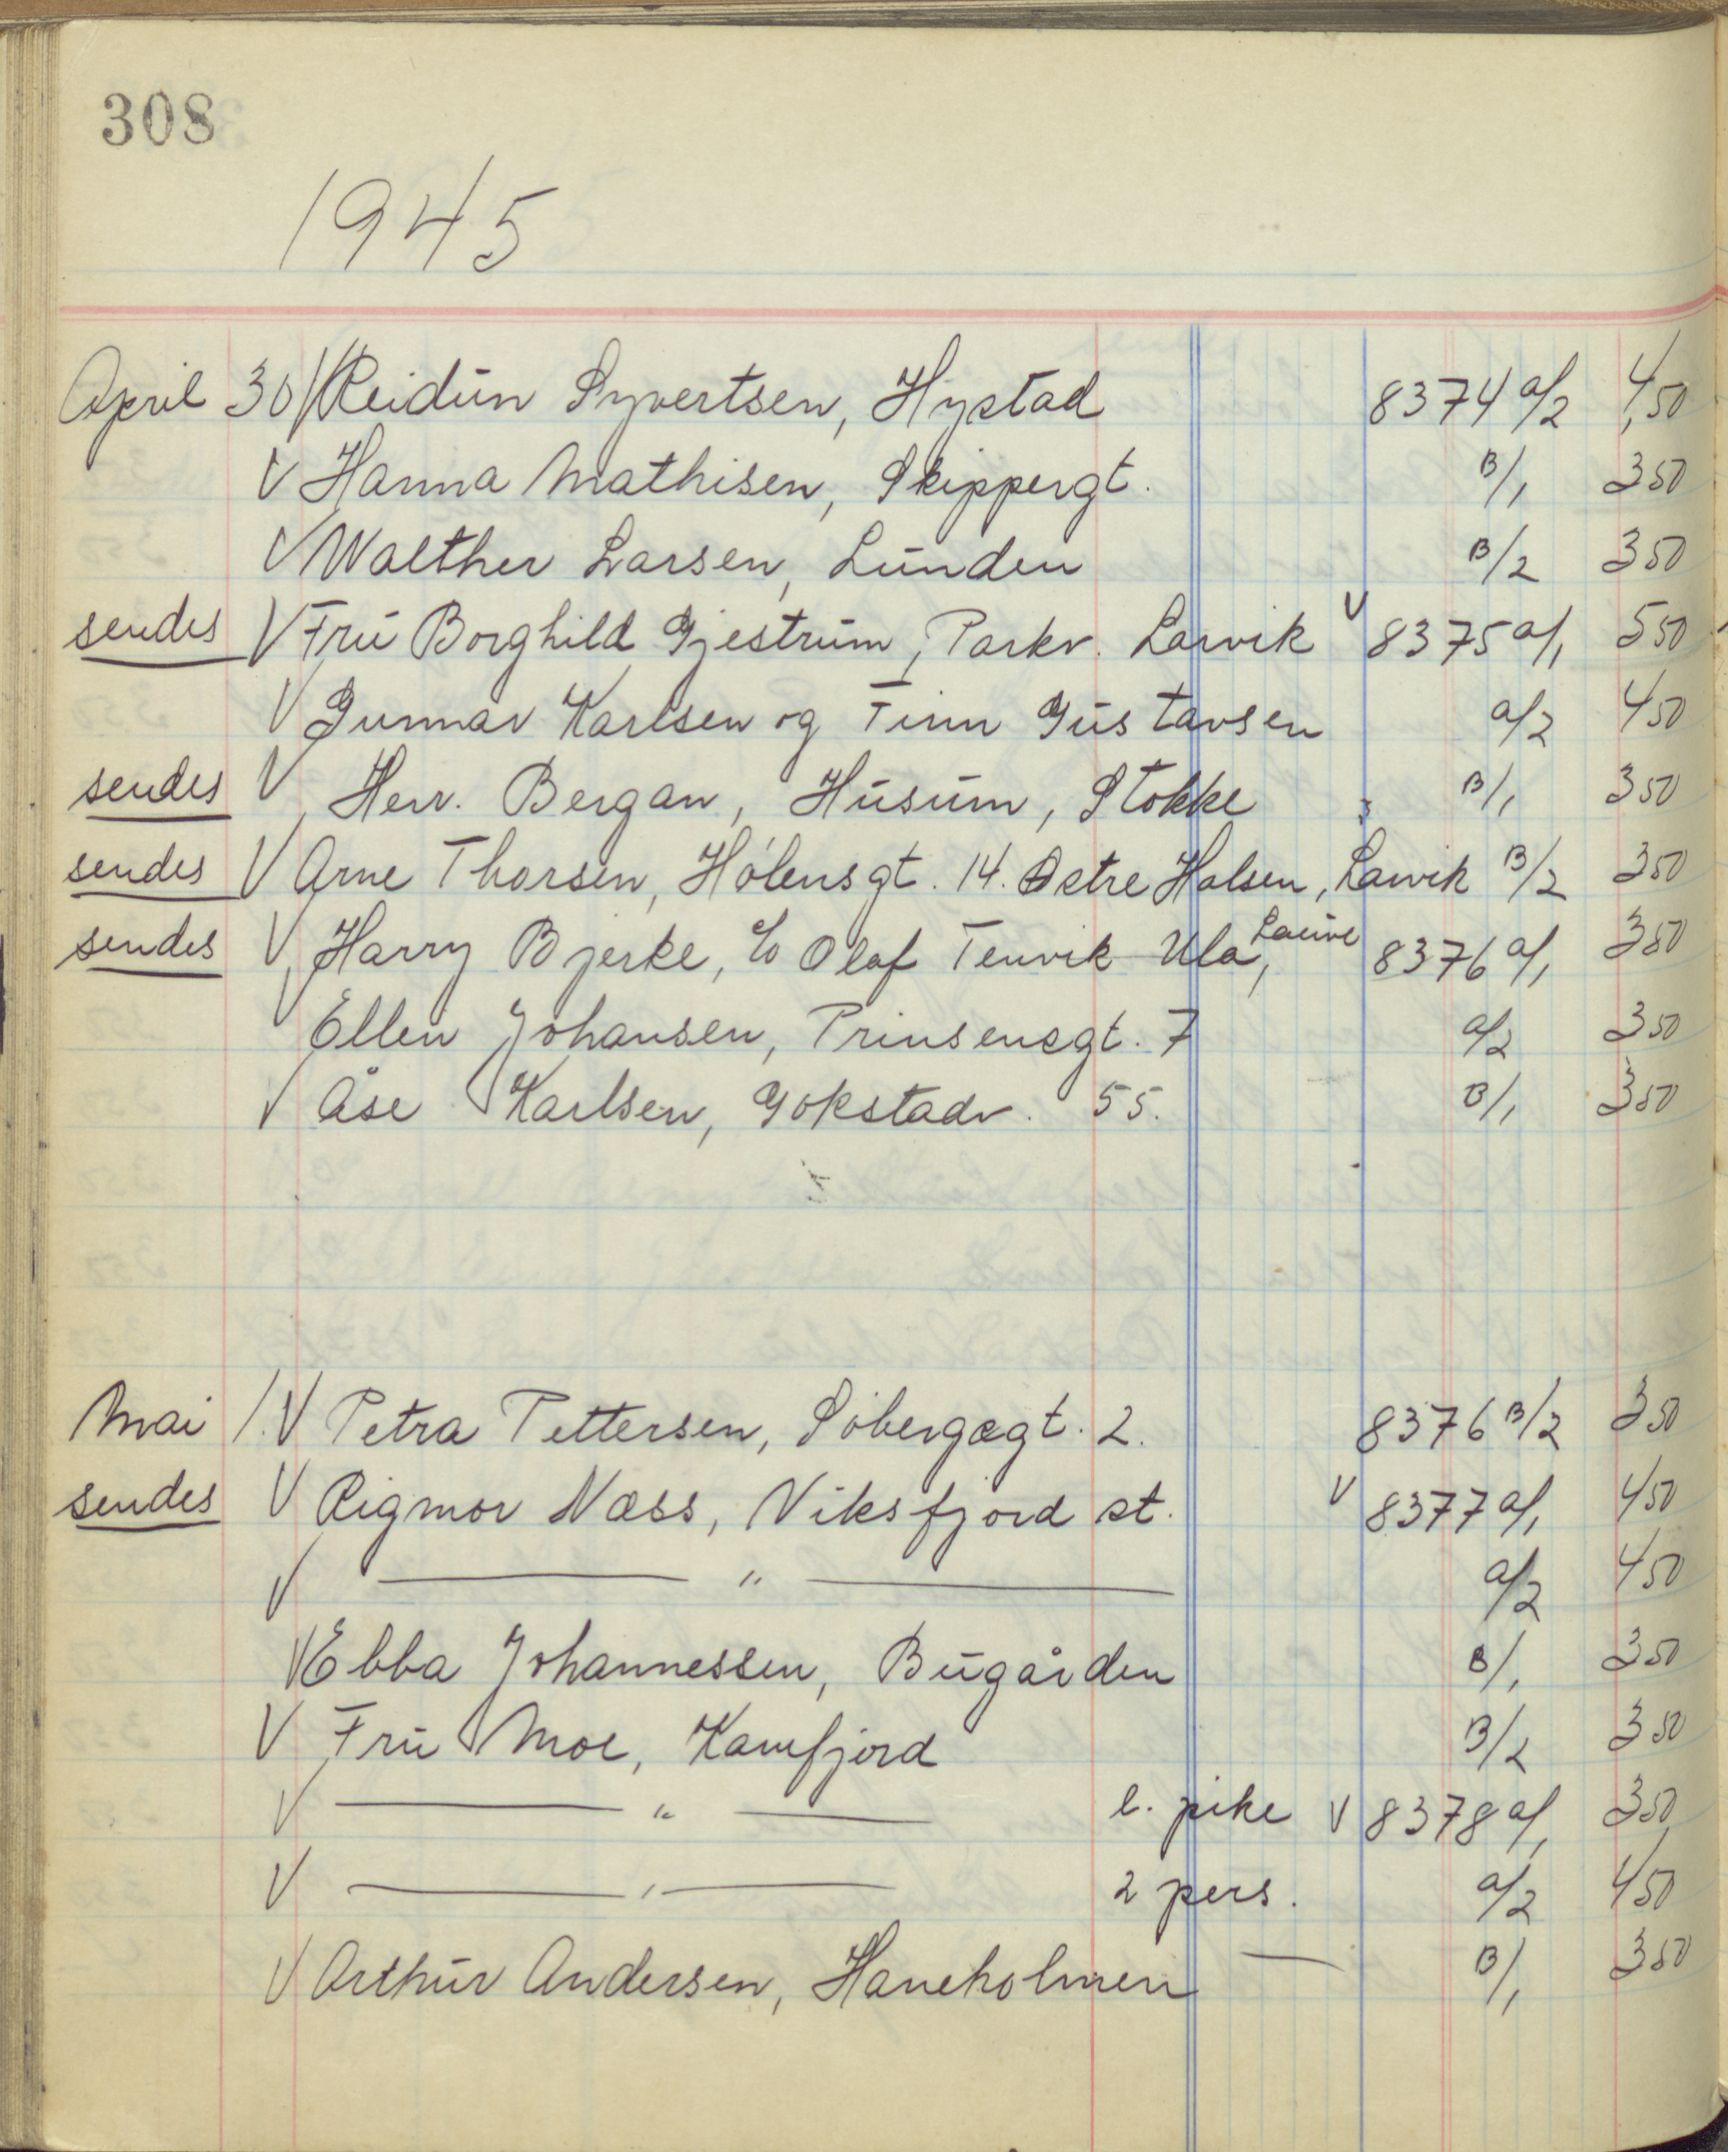 308
1945
April 30 V Reidun Syvertsen, Hystad 8374 a/2 4,50
V Hanna Mathisen, Skippergt. B/1 350
V Walther Larsen, Lunden B/2 350
sendes V Fru Borghild Gjestrum, Parkv. Larvik V 8375 a/1 550
V Gunnar Karlsen og Finn Gustavsen a/2 450
sendes V Herr. Bergan, Husum, Stokke B/1 350
sendes V Arne Thorsen, Hólensgt. 14. Østre Halsen, Larvik B/2 350
sendes V Harry Bjerke, c/o Olaf Tenvik Ula, Lauve 8376 a/1 350
V Ellen Johansen, Prinsensgt. 7 a/2 350
V Åse Karlsen, Gokstadv. 55. B/1 350
Mai 1. V Petra Pettersen, Sóbergsgt. 2. 8376 B/2 350
sendes V Rigmor Næss, Viksfjord st. V 8377 a/1 450
V — " — a/2 450
V Ebba Johannessen, Bugården B/1 350
V Fru Moe, Kamfjord B/2 350
V — " — l. pike V 8378 a/1 350
V — " — 2 pers. a/2 450
V Arthur Andersen, Haneholmen — B/1 350